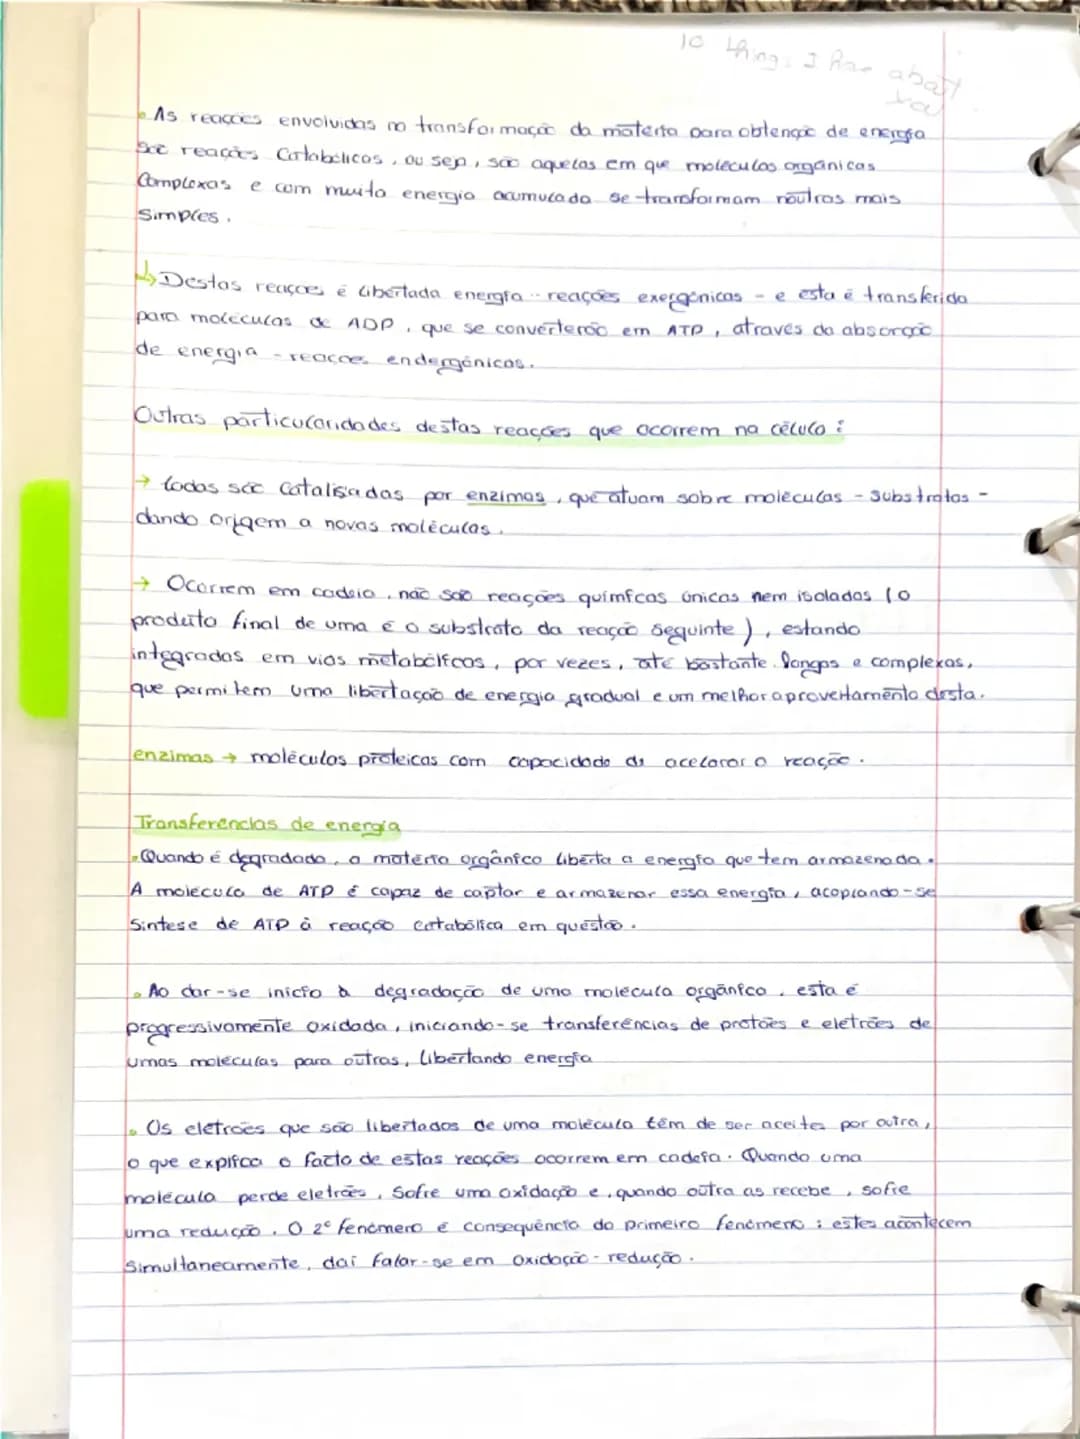 10 things I hate about
• As reações envolvidas na transformação da matéria para obtenção de energia
são reações catabólicas, ou seja, são aquelas em que moléculas orgânicas
complexas e com muita energia acumulada se transformam noutras mais
simples.
↳ Destas reações é libertada energia - reações exergónicas - e esta é transferida
para moléculas de ADP, que se converterão em ATP, através da absorção
de energia - reações endergónicas.
Outras particularidades destas reações que ocorrem na célula:
→ todas são catalisadas por enzimas, que atuam sobre moléculas - substratos -
dando origem a novas moléculas.
→ Ocorrem em cadeia, não são reações químicas únicas nem isoladas (o
produto final de uma é o substrato da reação seguinte), estando
integradas em vias metabólicas, por vezes, até bastante longas e complexas,
que permitem uma libertação de energia gradual e um melhor aproveitamento desta.
enzimas → moléculas proteicas com capacidade de acelarar a reação.
Transferências de energia
• Quando é degradada, a matéria orgânica liberta a energia que tem armazenada.
A molécula de ATP é capaz de captar e armazenar essa energia, acoplando-se
síntese de ATP à reação catabólica em questão.
• Ao dar-se início à degradação de uma molécula orgânica, esta é
progressivamente oxidada, iniciando-se transferências de protões e eletrões de
umas moléculas para outras, libertando energia
• Os eletrões que são libertados de uma molécula têm de ser aceites por outra,
o que explica o facto de estas reações ocorrem em cadeia. Quando uma
molécula perde eletrões, sofre uma oxidação e, quando outra as recebe, sofre
uma redução. O 2º fenómeno é consequência do primeiro fenómeno: estes acontecem
simultaneamente, daí falar-se em oxidação-redução.